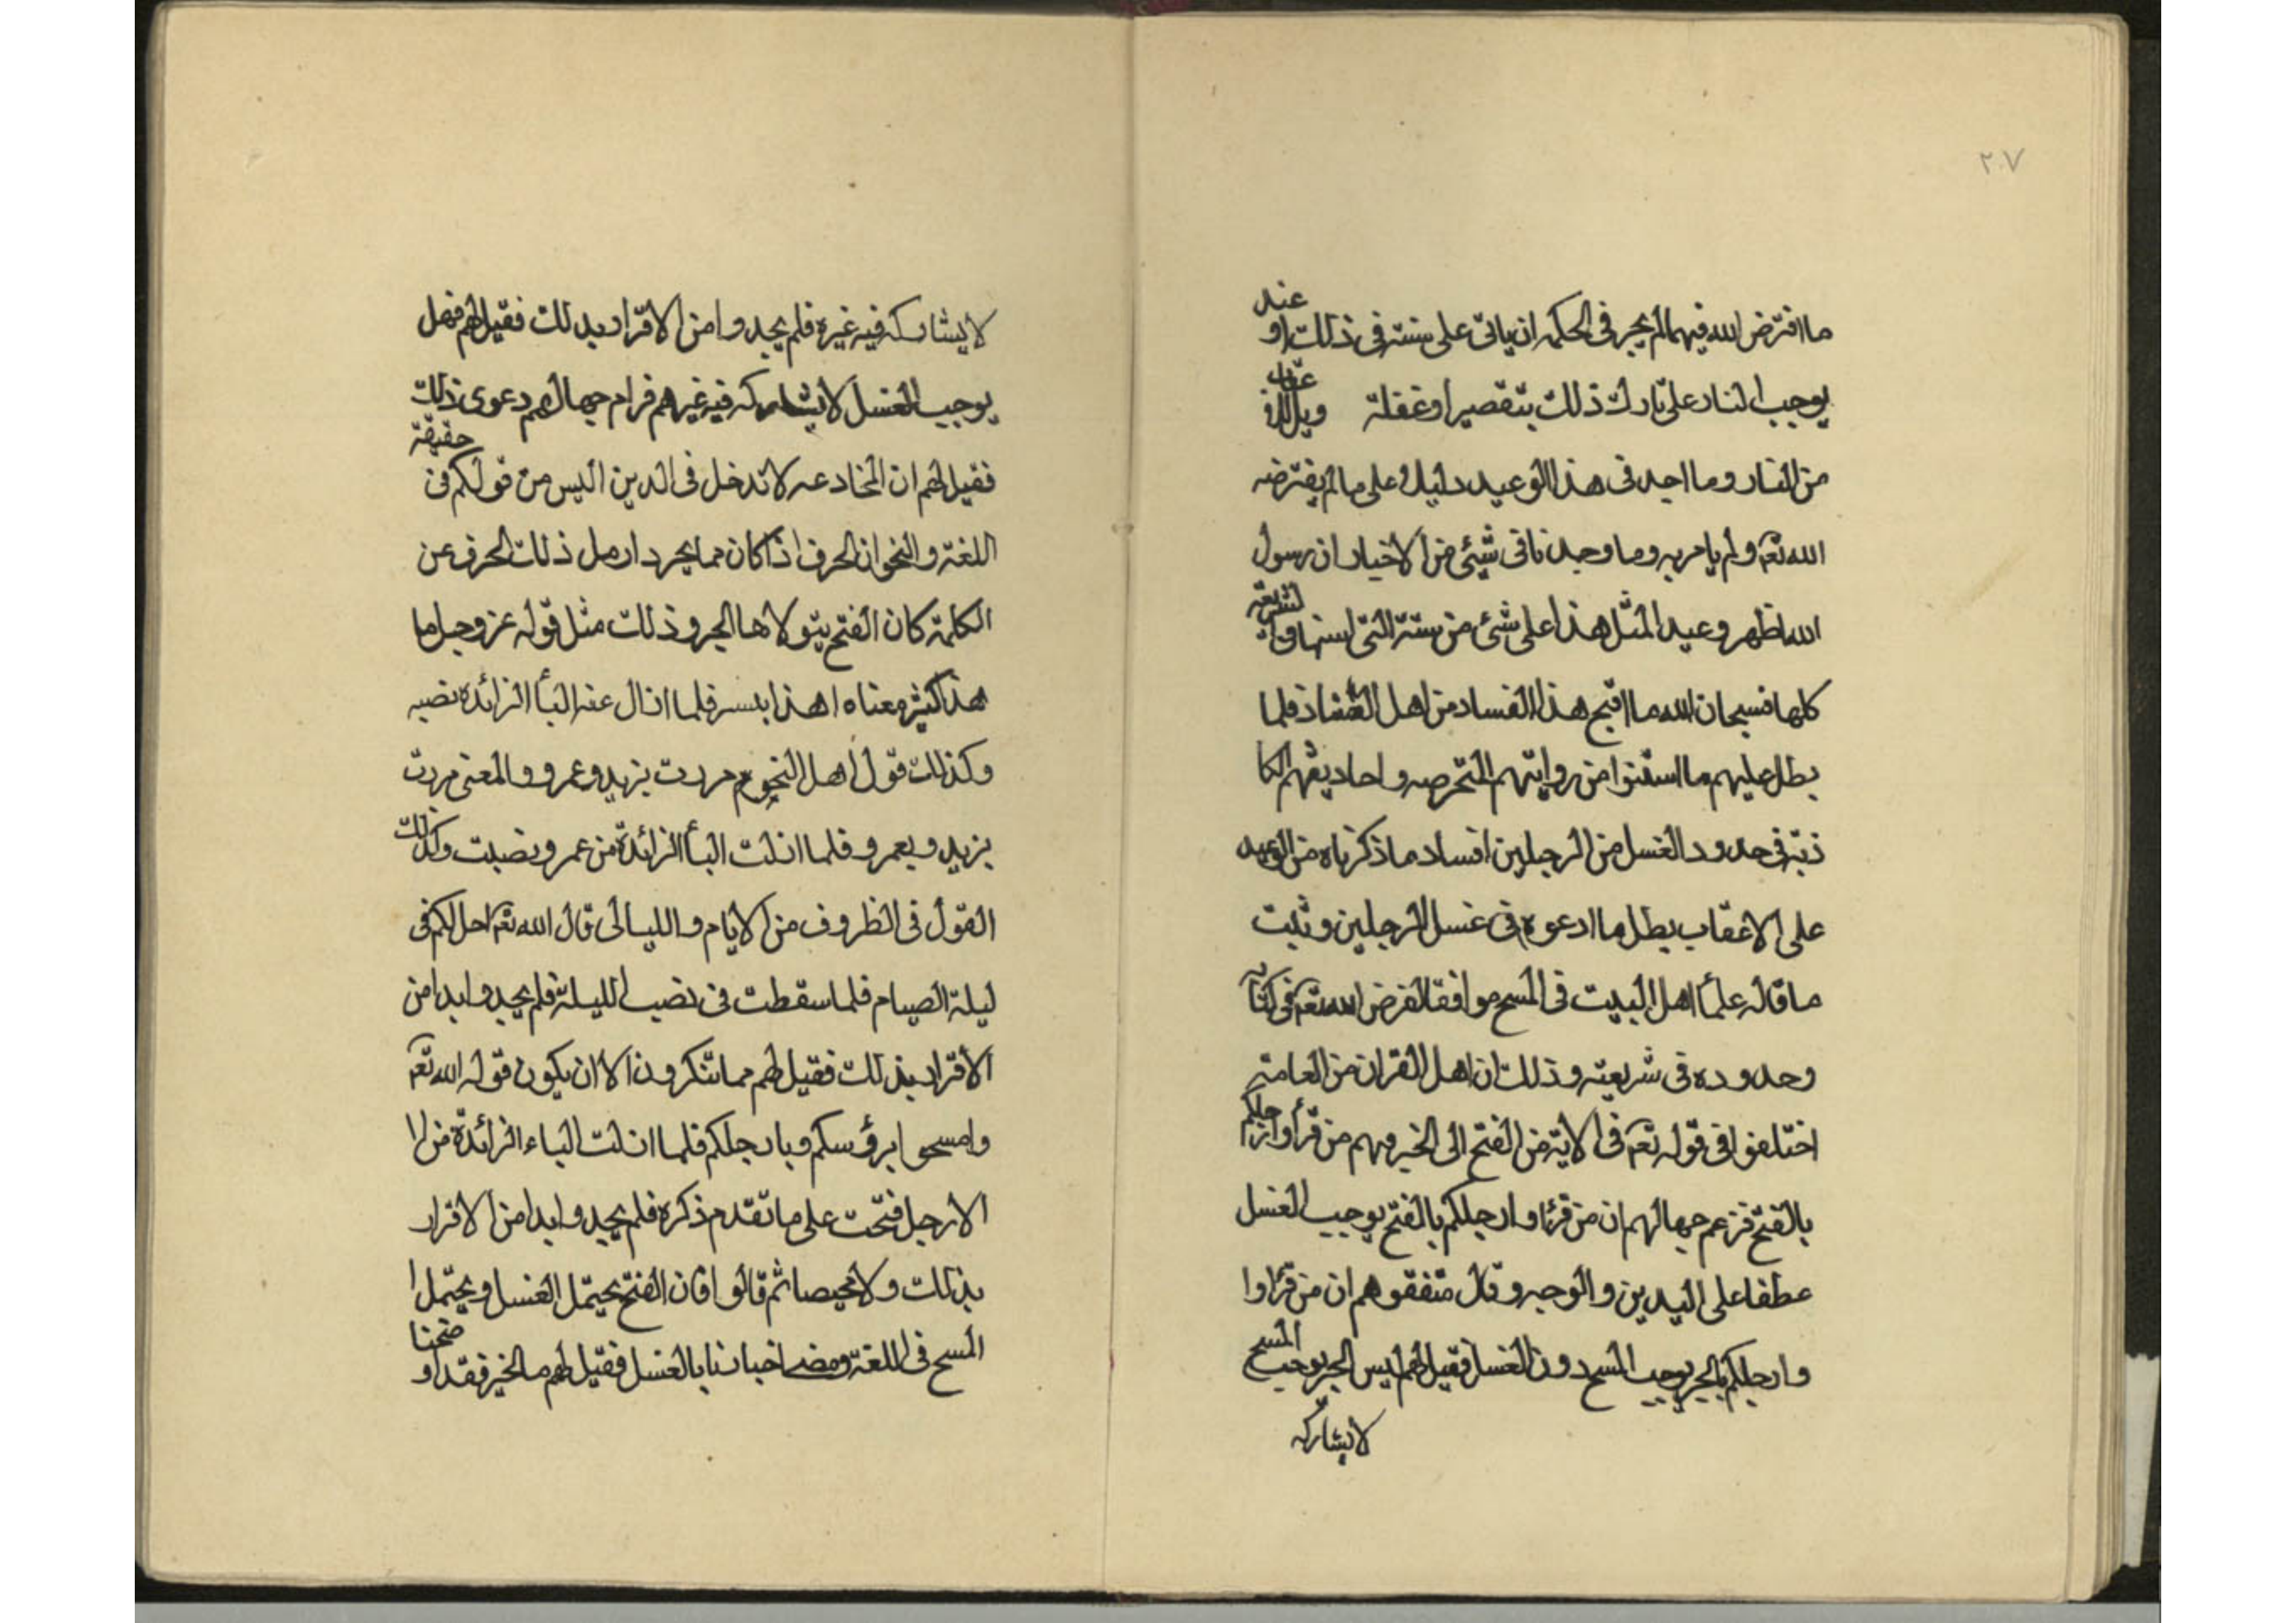 ٢٠٧
ما افترض الله فيهما لم يجر فى الحكمه ان ياتى على سنته فى ذلك او عند
يوجب النار على تارك ذلك بتقصير او غفلة ويل للاعقاب
من النار وما احد فى هذا الوعيد دليلا على ما لم يفترضه
الله تعه ولم يامر به وما وجدنا فى شيئ من الاخبار ان رسول
الله اظهر وعيد المثل هذا على شئ من سنته التى استنها
كلها فسبحان الله ما اقبح هذا الفساد من اهل فلما
بطل عليهم ما استنوا من روايتهم المتخرصه واحاديثهم الكا
ذبة فى حدود الغسل من الرجلين افساد ما ذكرناه من الوعيد
على الاعقاب بطل ما ادعوه فى غسل الرجلين وثبت
ما قاله علمأ اهل البيت فى المسح موافقا لفرض الله تعه فى كتابه
وحدوده فى شريعته وذلك ان اهل القران من العامته
اختلفوا فى قوله تعه فى الاية من الفتح الى الخبر ومنهم من قرأ وارجلكم
بالفتح فزعم جهالهم ان من قرئ وارجلكم بالفتح يوجب الغسل
عطفا على اليدين والوجه وقال متفقوهم ان من قرئ وا
وارجلكم بالجر يوجب المسح دون الغسل فقيل لهم ليس الجر يوجب المسح
لا يشاركه
لا يشاركه فيه غيره فلم يجدوا من الاقرار بد لك فقيل لهم فهل
يوجب الغسل لا يشاركه فيه غيرهم فرام جهالهم دعوى ذلك
فقيل لهم ان المخادعه لا تدخل فى الدين اليس من قولكم فى حقيقة
اللغة والنحو ان الحرف اذا كان مما يجر ذلك الحرف عن
الكلمة كان الفتح يتولاها الجر وذلك مثل قوله عز وجل ما
هذا معناه ا هذا فلما ازال عنه البأ الزائدة نصبه
وكذلك قول اهل النحو م مررت بزيد وعمرو والمعنى مررت
بزيد وبعمرو فلما ازلت البأ الزائدة من عمرو نصبت وكذلك
القول فى الظروف من الايام والليالى قال الله تعه احل لكم فى
ليلة الصيام فلما سقطت فى نصب الليلة فلم يجدوا بدا من
الاقرار بذلك فقيل لهم مما تنكرون الا ان يكون قوله الله تعه
وامسحوا برؤسكم وبارجلكم فلما ازلت الباء الزائدة من ا
الارجل فتحت على ما تقدم ذكره فلم يجدوا بدا من الاقرار
بذلك ولا محيصا ثم قالوا فان الفتح يحتمل الغسل ويحتمل ا
المسح فى اللغة ومضى اخبارنا بالغسل فقيل لهم ما الخبر فقد او ضحنا